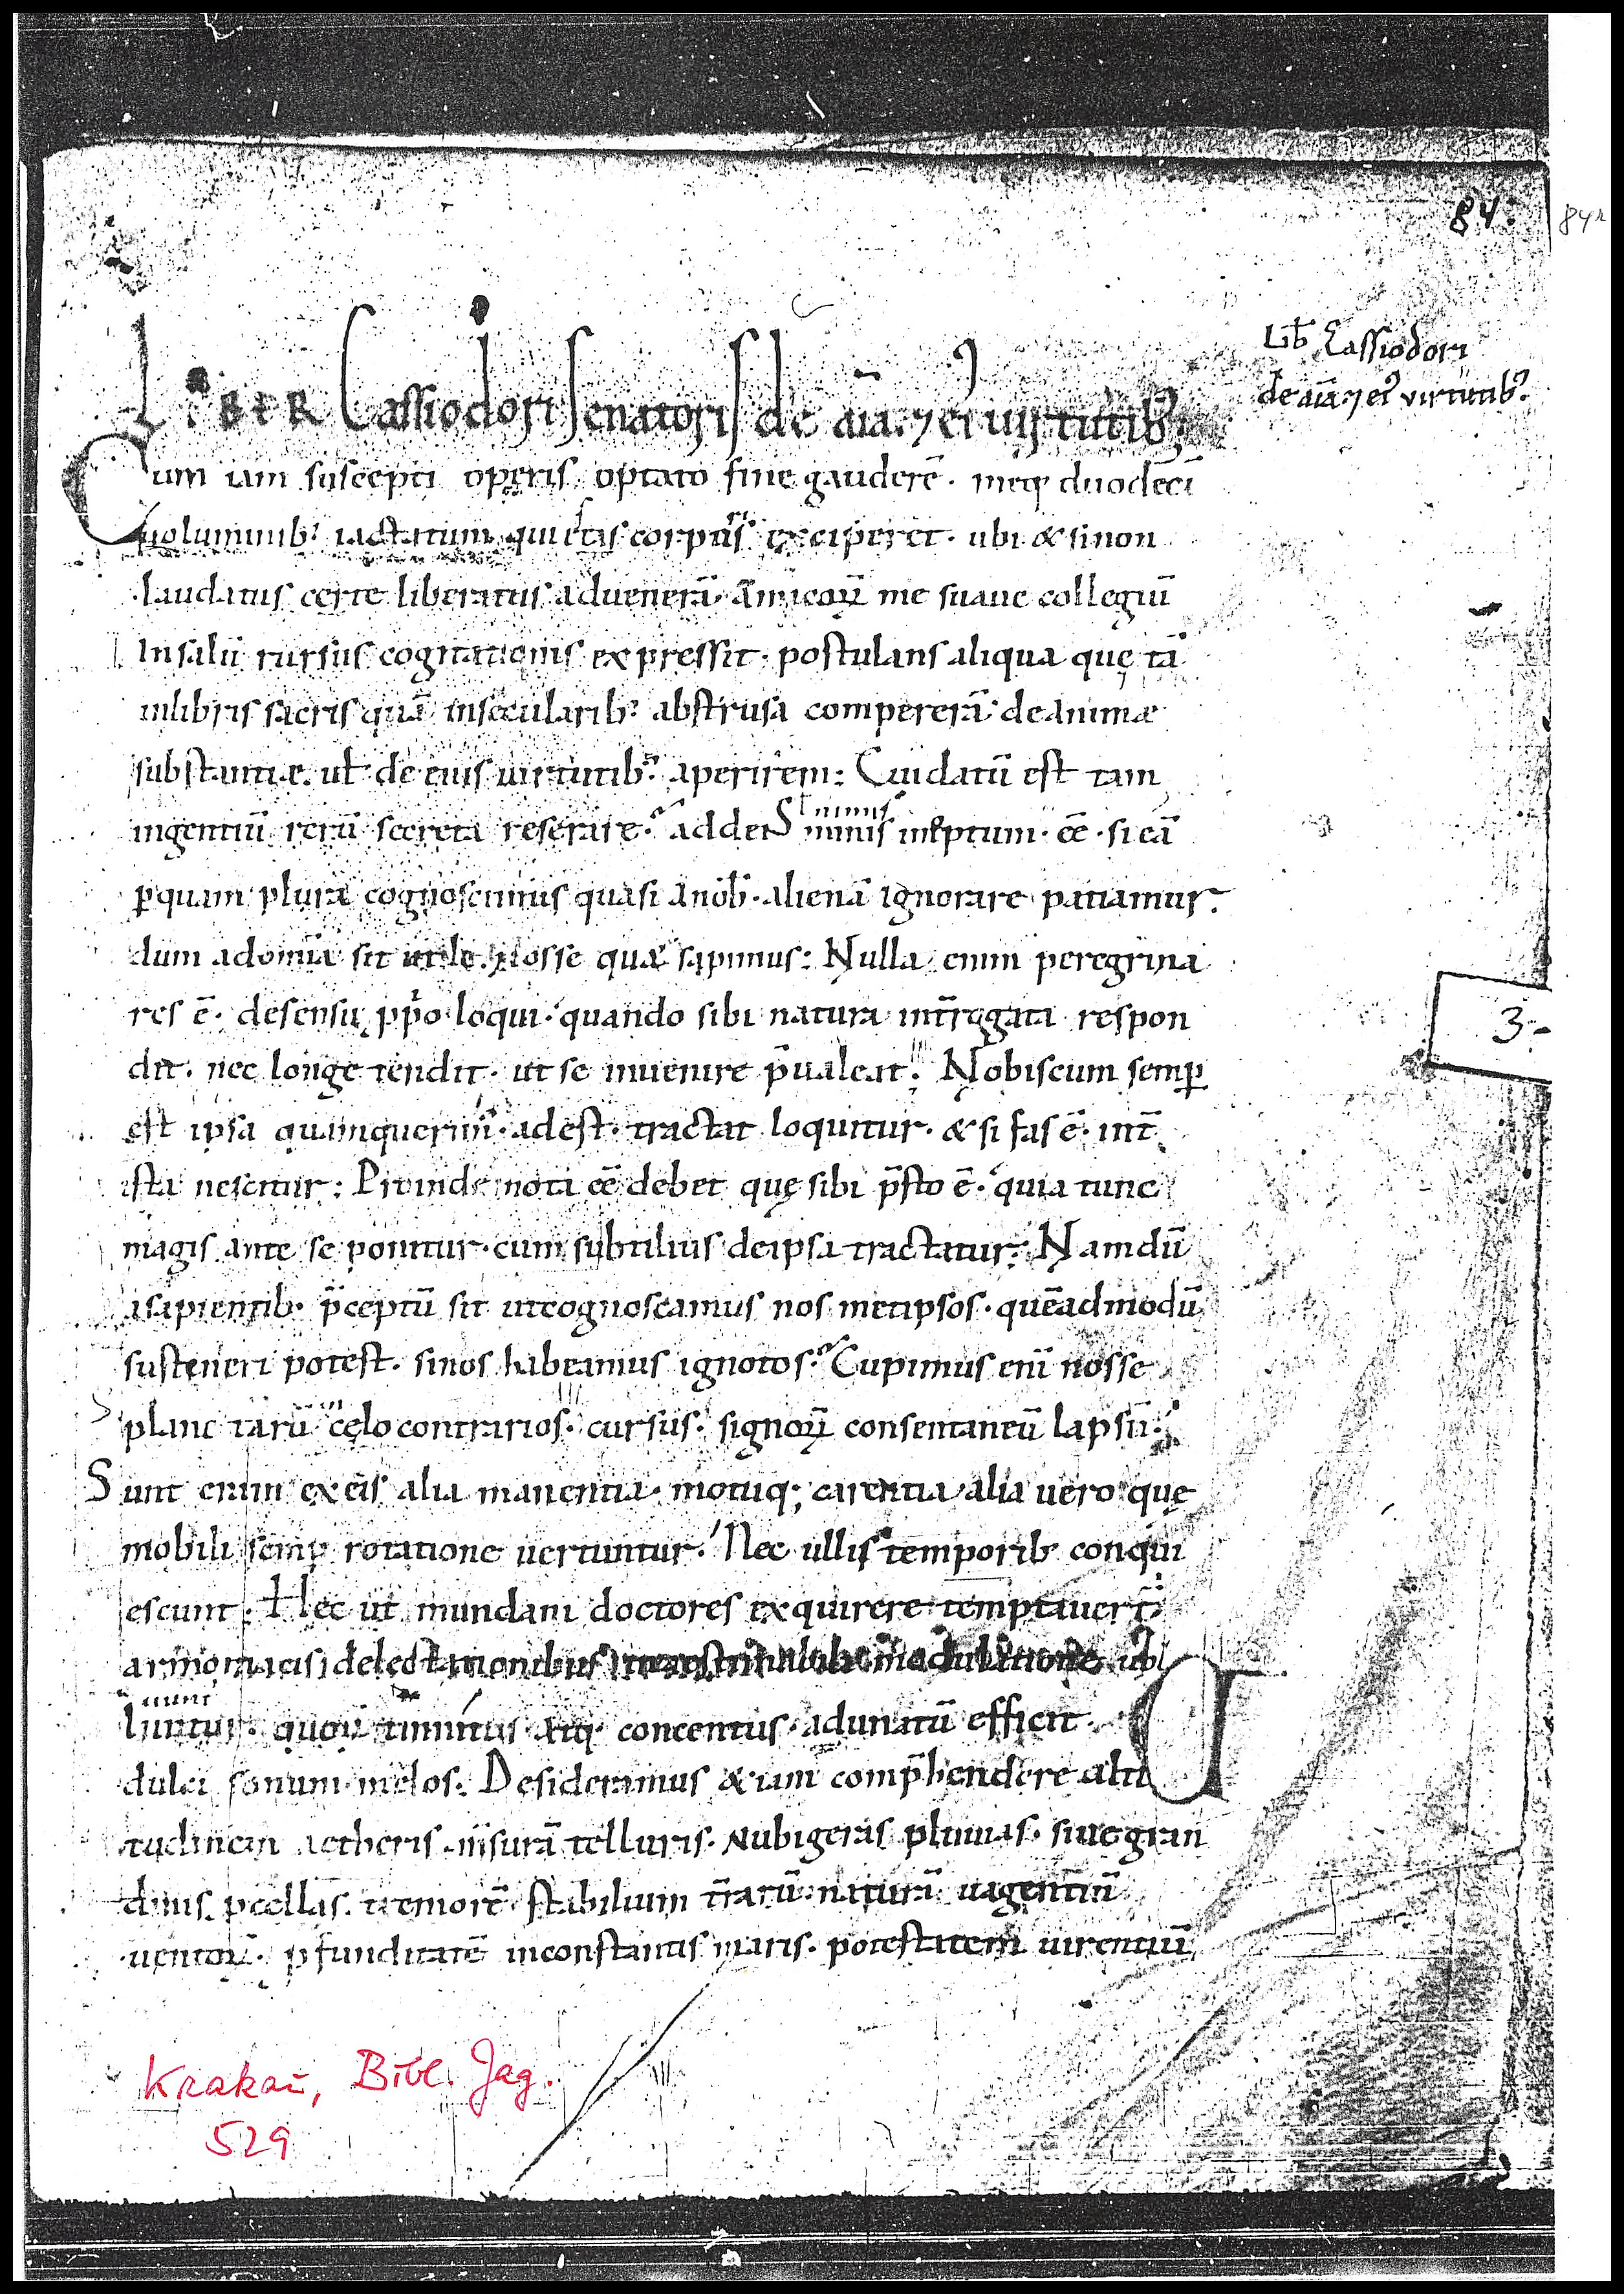 84.
84r
LiBER Cassiodori senatoris de aīa. ⁊ eiꝰ uirtutib;
Lib Cassiodori
de aīa ⁊ eiꝰ virtutibꝰ
Cum iam suscepti operis optato fine gauderē. meq; duodeci
uoluminibꝰ iactatum quietis corpus exciperet. ubi & si non
laudatus certe liberatus aduenerā. amicoꝝ me suaue collegiū
In salū rursus cogitationis expressit. postulans aliqua quę tā
inlibris sacris quā insecularibꝰ abstrusa compererā. de animæ
substantiæ. uł de eius uirtutibꝰ aperirem: Cui datū est tam
ingentiū rerū secreta reserare. addens
nimis ineptum. eē. si eā
ꝑquam plura cognoscimus quasi anob. alienā ignorare patiamur.
dum adomīa sit utile nosse qua sapimus: Nulla enim peregrina
res ē. desensu ꝓprio loqui. quando sibi natura int̄rogata respon
dit. nec longe tendit. ut se inuenire p̄ualeat. Nobiscum semꝑ
est ipsa adest. tractat loquitur. & si fas ē. int̄
ista nescitur: Proinde nota eē debet quę sibi p̄sto ē. quia tunc
magis ante se ponitur. cum subtilius deipsa tractatur. Nam dū
asapientib. p̄ceptū sit utcognoscamus nos metipsos. quēadmodū
susteneri potest. sinos habeamus ignotos. Cupimus enī nosse
planetarū cęlo contrarios. cursus. signoꝝ consentaneū lapsū.
Sunt enim exeis alia manentia. motuq; carentia alia uero quę
mobili semꝑ rotatione uertuntur. Nec ullis temporib conqui
escunt. Hec ut mundani doctores exquirere temptauert̄
armoniacis delectationibus
nunt
quoꝝ tinnitus atq; concentus. adunatū efficit
dulci sonum melos. Desideramus & iam comp̄hendere alti
tudinem aetheris. m̄surā telluris. Nubigeras pluuias. siue gran
dinis. ꝓcellas. tremorē stabilium t̄rarū. naturā uagentiū
uentoꝝ. ꝓfunditatē inconstantis maris. potestatem uirentiū
3.-
Krakau, Bibl. Jag.
529